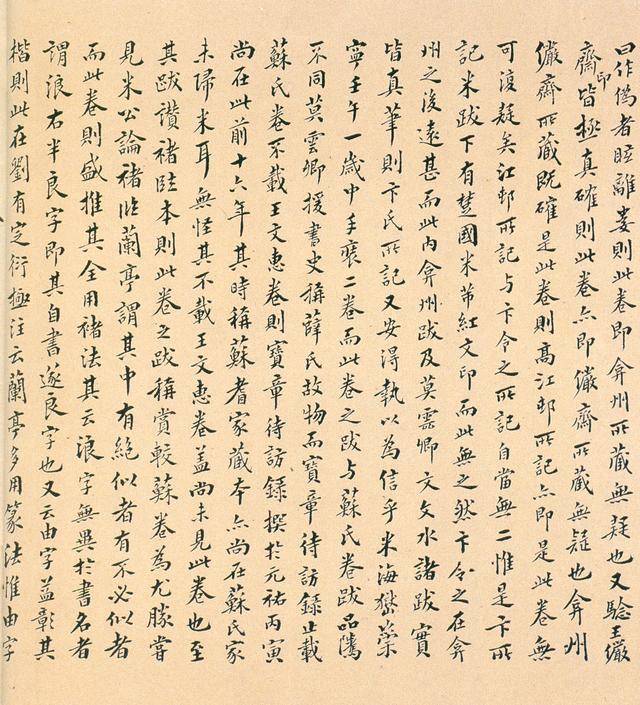 曰作偽者眩離婁則此卷即弇州所藏無疑也又騐王儼
齋印皆極真確則此卷亦即儼齋所藏無疑也弇州
儼齋所藏既確是此卷則高江邨所記亦即是此卷無
可復疑矣江邨所記与卞令之所記自當無二惟是卞所
記米跋下有楚國米芾紅文印而此無之然卞令之在弇
州之後遠甚而此內弇州跋及莫雲卿文文水諸跋實
皆真筆則卞氏所記又安得執以為信乎米海嶽崇
寧壬午一歲中手裝二卷而此卷之跋与蘇氏卷跋品隲
不同莫雲卿援書史稱薛氏故物而寶章待訪録止載
蘇氏卷不載王文惠卷則寶章待訪録撰於元祐丙寅
尚在此前十六年其時稱蘇耆家藏本亦尚在蘇氏家
未歸米耳無怪其不載王文惠卷盖尚未見此卷也至
其跋讚褚臨本則此卷之跋稱賞較蘇卷為尤勝嘗
見米公論褚臨蘭亭謂其中有絕似者有不必似者
而此卷則盛推其全用褚法其云浪字無異於書名者
謂浪右半良字即其自書遂良字也又云由字益彰其
楷則此在劉有定衍極注云蘭亭多用篆法惟由字